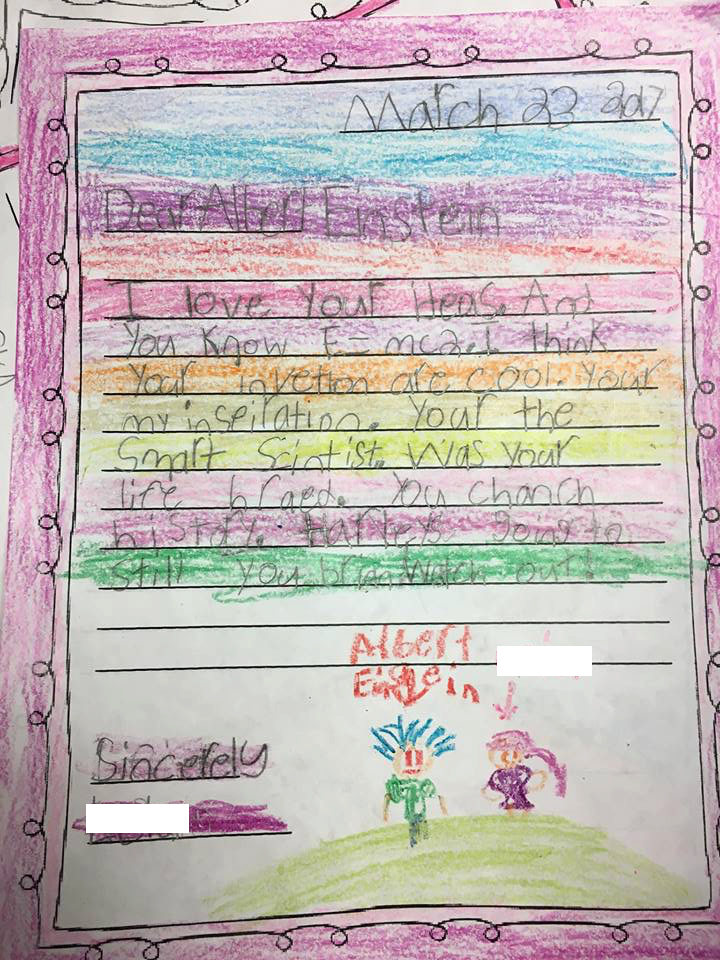 March 23 2017
Dear Albert Einstein
I love your ideas. And
you know E=mc2. I think
your invetion are cool. your
my inseiration. your the
Smart Scintist. Was your
life hraed. You chanch
history. Harley's going to
still your brian watch out!
Albert
Einstein
Sincerely